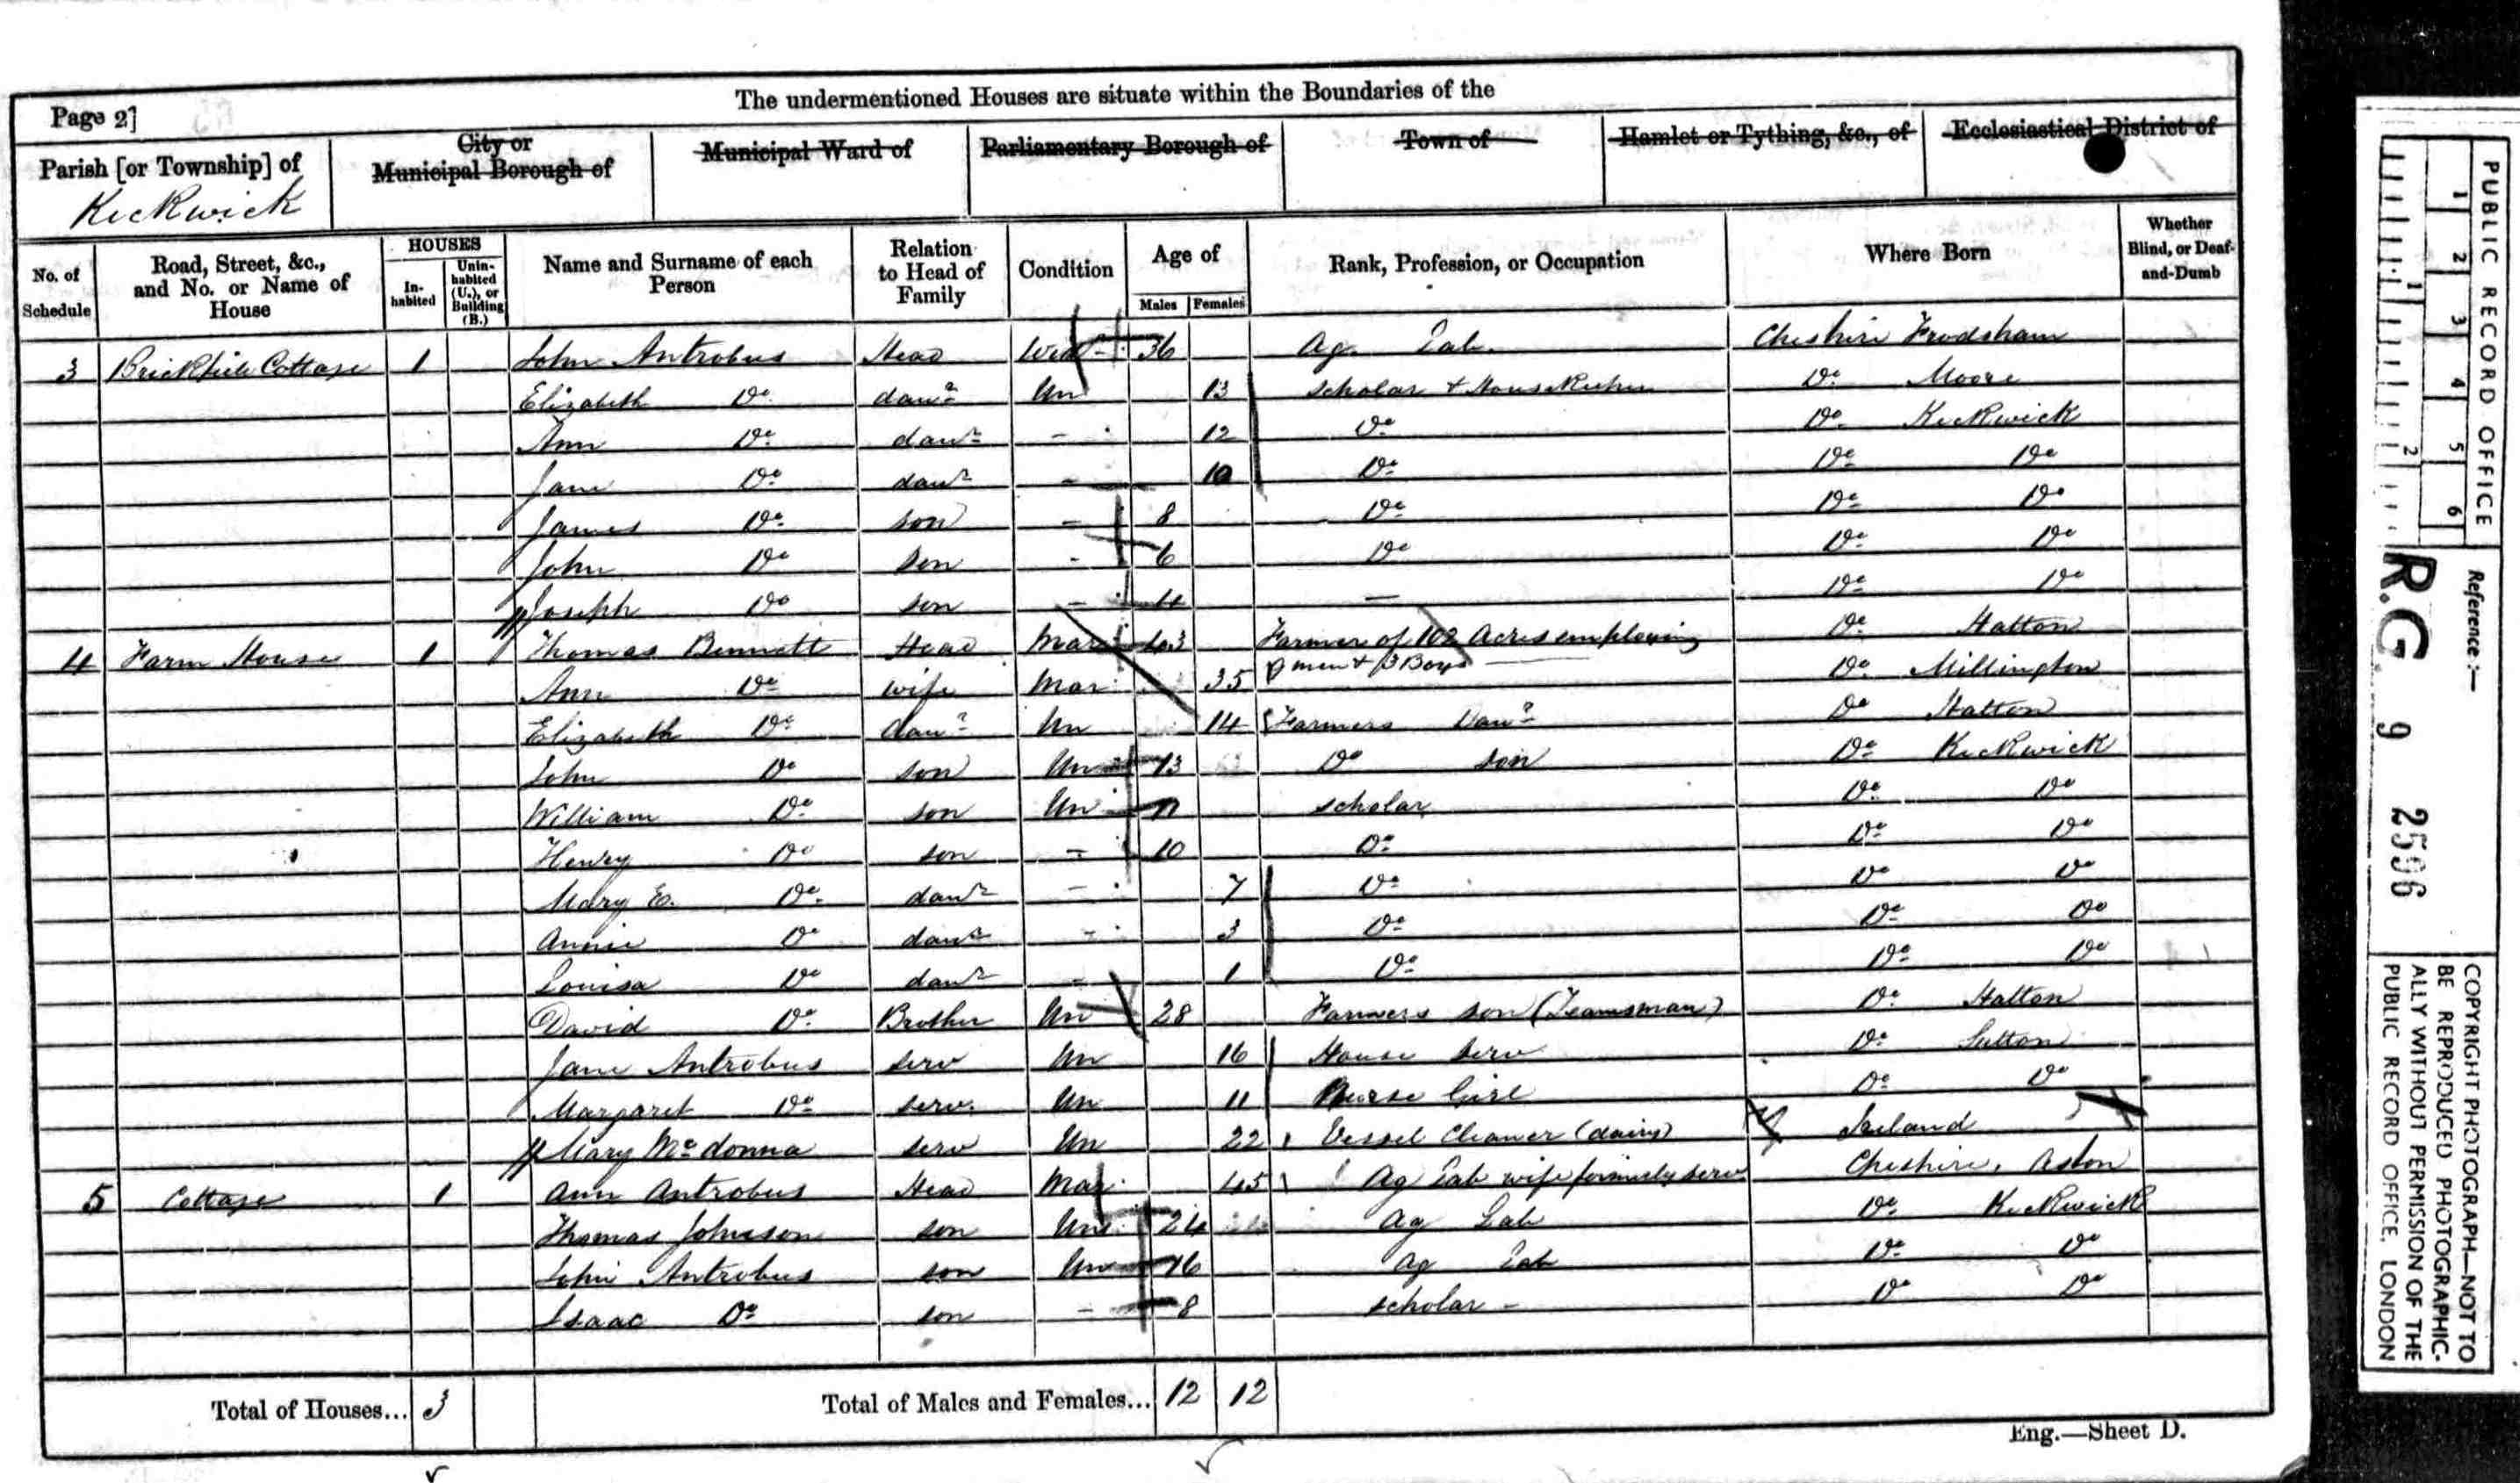 The undermentioned Houses are situate within the Boundaries of the
Page 2]
Parish [or Township] of
Keckwick
City or
Municipal Borough of
Municipal Ward of
Parliamentary Borough of
Town of
Hamlet or Tything, &c., of
Ecclesiastical District of
No. of Schedule
Road, Street, &c., and No. or Name of House
HOUSES
In-habited
Unin-habited (U.), or Building (B.)
Name and Surname of each Person
Relation to Head of Family
Condition
Age of
Males
Females
Rank, Profession, or Occupation
Where Born
Whether Blind, or Deaf-and-Dumb
3 Cottage 1 John Antrobus Head Wid 36 Ag. Lab. Cheshire Frodsham
Elizabeth Do daur Un 13 Scholar & Housekeeper Do Moore
Ann Do daur - 12 Do Do Keckwick
Jane Do daur - 10 Do Do Do
James Do son - 8 Do Do Do
John Do son - 6 Do Do Do
Joseph Do son - 4 - Do Do
4 Farm House 1 Thomas Bennett Head Mar 43 Farmer of 102 Acres employing Do Hatton
men & 3 Boys
Ann Do wife Mar 35 Do Millington
Elizabeth Do daur Un 14 Farmers Daur Do Hatton
John Do son Un 13 Do son Do Keckwick
William Do son Un 11 scholar Do Do
Henry Do son - 10 Do Do Do
Mary E. Do daur - 7 Do Do Do
Annie Do daur - 3 Do Do Do
Louisa Do daur - 1 Do Do Do
David Do Brother Un 28 Farmers son (Teamsman) Do Hatton
Jane Antrobus serv Un 16 House Serv Do Sutton
Margaret Do serv. Un 11 Nurse Girl Do Do
Mary Mc donna serv Un 22 Vessel Cleaner (dairy) Ireland
5 Cottage 1 Ann Antrobus Head Mar 45 Ag Lab wife formerly serv Cheshire, Aston
Thomas Johnson son Un 24 Ag Lab Do Keckwick
John Antrobus son Un 16 Ag Lab Do Do
Isaac Do son - 8 scholar - Do Do
Total of Houses... 3
Total of Males and Females... 12 12
Eng.—Sheet D.
PUBLIC RECORD OFFICE
1 2 3 4 5 6
1 2
Reference:—
R.G. 9 2596
COPYRIGHT PHOTOGRAPH—NOT TO
BE REPRODUCED PHOTOGRAPHIC-
ALLY WITHOUT PERMISSION OF THE
PUBLIC RECORD OFFICE, LONDON